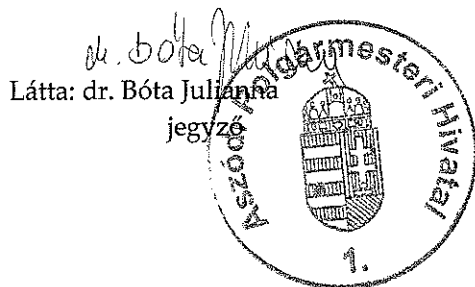 dr. Bóta
Látta: dr. Bóta Julianna
jegyző
Aszódi Polgármesteri Hivatal
1.